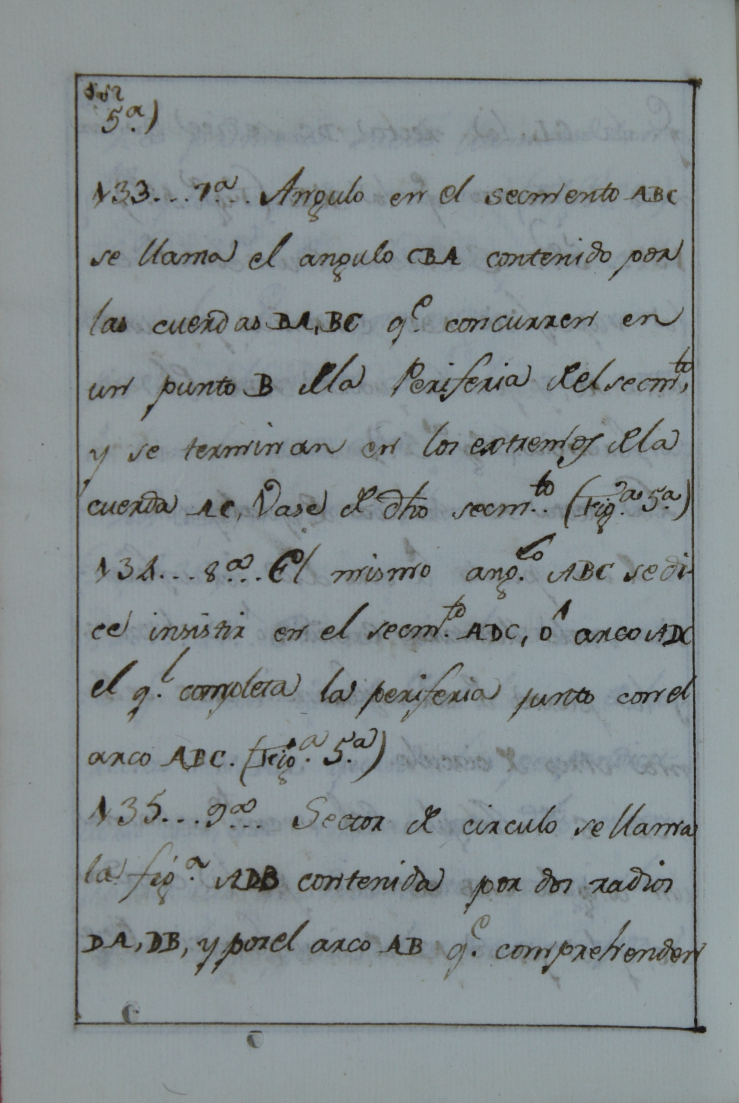 5.ª)
133...7.ª... Angulo en el secmento ABC
se llama el angulo CBA contenido por
las cuerdas BA, BC q.e concurren en
un punto B dela Periferia del secm.to,
y se terminan en los extremos dela
cuerda AC, Vase de dho secm.to (Fig.ª 5.ª)
134...8.ª... El mismo ang.lo ABC se di-
ce insistir en el secm.to ADC, ó arco ADC
el q.l completa la periferia junto con el
arco ABC. (Fig.ª 5.ª)
135...9.ª... Sector de circulo se llama
la fig.ª ADB contenida por dos radios
DA, DB, y por el arco AB q.e comprehenden